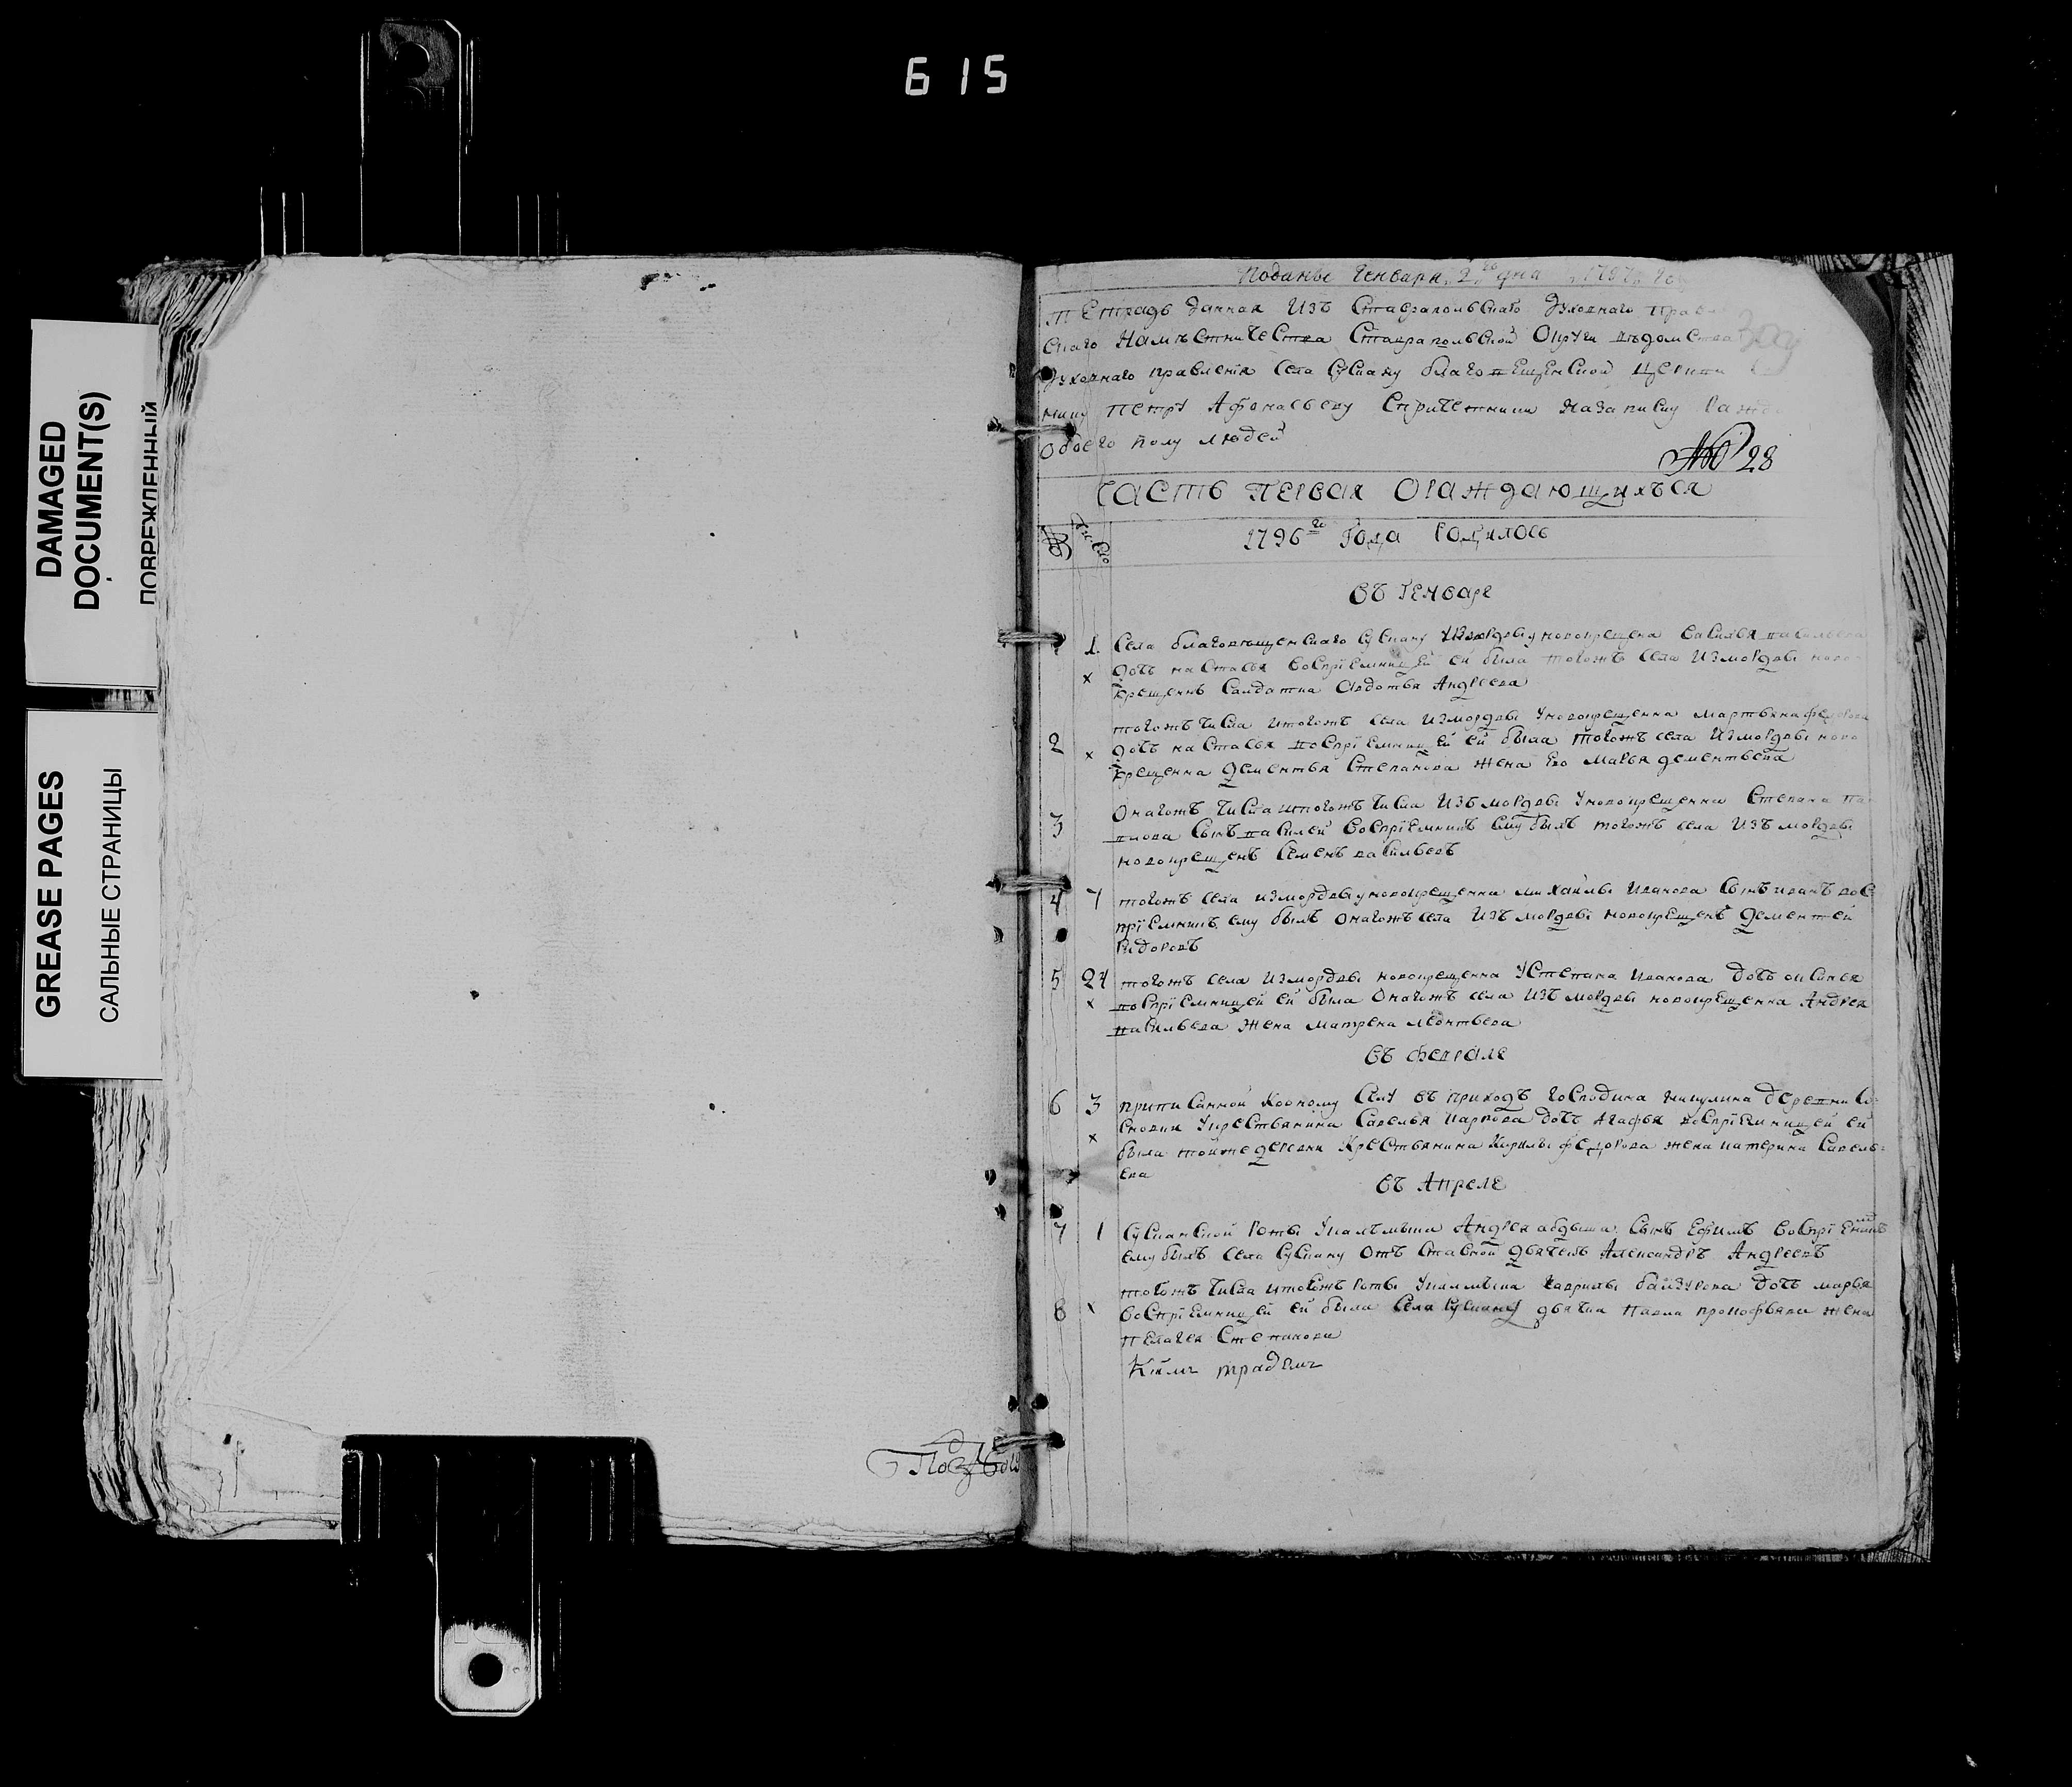 615
DAMAGED
DOCUMENT(S)
ПОВРЕЖДЕННЫЙ
GREASE PAGES
САЛЬНЫЕ СТРАНИЦЫ
Поданы Генваря 2 го дня 1797 го
Тетрадь данная изъ Ставрапольскаго духовнаго правл
скаго намѣстничества Ставрапольской округи вѣдомства
духовнаго правленія села Сускану благовещенской церкви
нику Петру Афонасьеву спричетники назаписку ражд
обоего полу людей
№ 28
Часть первая ораждающихъся
№ число
1796 го года родилось
въ генваре
1 села благовѣщенскаго Сускану измордвы уновокрещена Василья Васильева
дочь настасья воспріемницей ей была тогожъ села измордвы ново
крещенъ салдатка Авдотья Андреева
2 тогожъ числа итогожъ села измордвы уновокрещенна мартьяна федорова
дочь настасья воспріемницей ей была тогожъ села измордвы ново
крещенна дементья Степанова жена его марья дементьева
3 онагожъ числа итогожъ числа изъ мордвы уновокрещенна Степана па
влова сынъ василей воспріемникъ ему былъ тогожъ села изъ мордвы
новокрещенъ Семенъ васильевъ
4 7 тогожъ села измордвы уновокрещенна михаилы иванова сынъ иванъ вос
пріемникъ ему былъ онагожъ села изъ мордвы новокрещенъ дементей
5 24 тогожъ села измордвы новокрещенна устепана иванова дочь
воспріемницей ей была онагожъ села изъ мордвы новокрещенна Андрея
васильева жена матрена леонтьева
въ феврале
6 3 приписанной коеному селу въ приходъ господина микулина деревни
укрестьянина Савелья дочь агафья воспріемницей ей
была тойже деревни крестьянина кирилы федорова жена катерина Савель
ева
въ Апреле
7 1 Сусканской роты укалмыка Андрея сынъ Ефимъ воспріемникъ
ему былъ села Сускану отъ ставной дьячекъ Александръ Андреевъ
8 тогожъ числа итогожъ роты укалмыка гаврилы дочь марья
воспріемницей ей была села Сускану дьячка павла прокофьева жена
пелагея Степанова